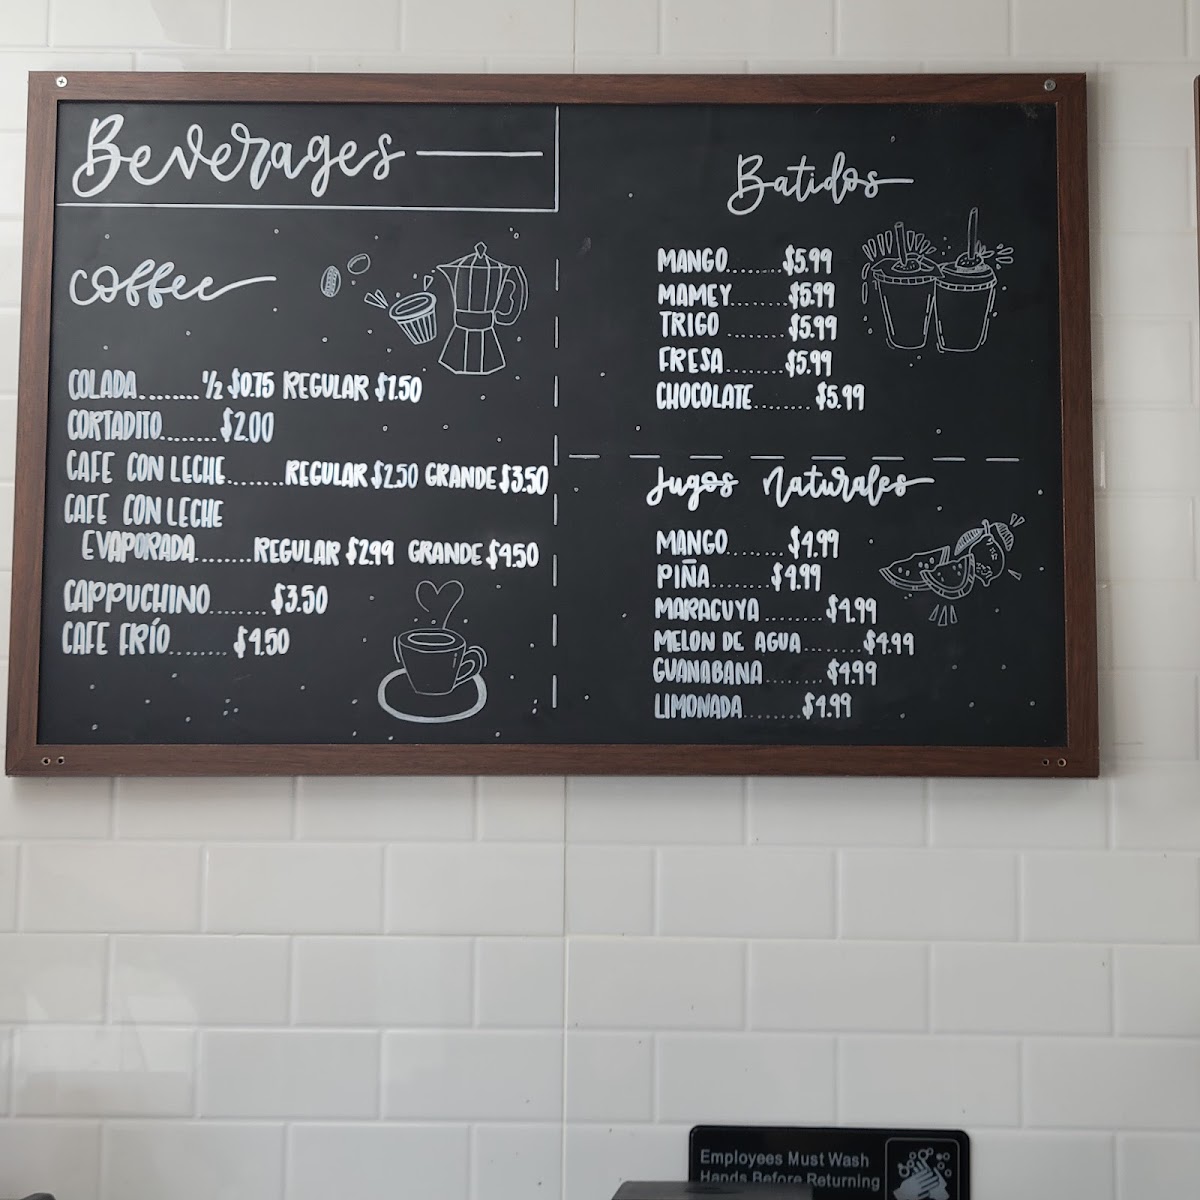 Beverages
Coffee
COLADA......... 1/2 $0.75 REGULAR $1.50
CORTADITO........ $2.00
CAFE CON LECHE........ REGULAR $2.50 GRANDE $3.50
CAFE CON LECHE
EVAPORADA........ REGULAR $2.99 GRANDE $4.50
CAPPUCHINO........ $3.50
CAFE FRÍO........ $4.50
Batidos
MANGO........ $5.99
MAMEY........ $5.99
TRIGO ........ $5.99
FRESA........ $5.99
CHOCOLATE........ $5.99
Jugos Naturales
MANGO........ $4.99
PIÑA........ $4.99
MARACUYA ........ $4.99
MELON DE AGUA........ $4.99
GUANABANA........ $4.99
LIMONADA........ $4.99
Employees Must Wash
Hands Before Returning